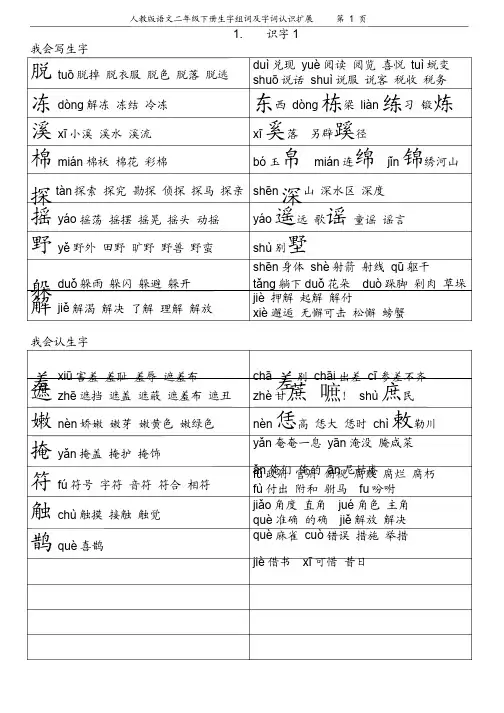 人教版语文二年级下册生字组词及字词认识扩展 第 1 页
1. 识字1
我会写生字
脱 tuō脱掉 脱衣服 脱色 脱落 脱逃
duì兑现 yuè阅读 阅览 喜悦 tuì蜕变
shuō说话 shuì说服 说客 税收 税务
冻 dòng解冻 冻结 冷冻
东西 dòng栋梁 liàn练习 锻炼
溪 xī小溪 溪水 溪流
xī奚落 另辟蹊径
棉 mián棉袄 棉花 彩棉
bó玉帛 mián连绵 jǐn锦绣河山
探 tàn探索 探究 勘探 侦探 探马 探亲
shēn深山 深水区 深度
摇 yáo摇荡 摇摆 摇晃 摇头 动摇
yáo遥远 歌谣 童谣 谣言
野 yě野外 田野 旷野 野兽 野蛮
shù别墅
躲 duǒ躲雨 躲闪 躲避 躲开
shēn身体 shè射箭 射线 qū躯干
tǎng躺下 duǒ花朵 duò跺脚 剁肉 草垛
解 jiě解渴 解决 了解 理解 解放
jiè 押解 起解 解付
xiè邂逅 无懈可击 松懈 螃蟹
我会认生字
羞 xiū害羞 羞耻 羞辱 遮羞布
chā差别 chāi出差 cī参差不齐
遮 zhē遮挡 遮盖 遮蔽 遮羞布 遮丑
zhè甘蔗 嗻! shù庶民
嫩 nèn娇嫩 嫩芽 嫩黄色 嫩绿色
nèn恁高 恁大 恁时 chì敕勒川
掩 yǎn掩盖 掩护 掩饰
yǎn奄奄一息 yān淹没 腌咸菜
符 fú符号 字符 音符 符合 相符
fù付出 附和 驸马 fu吩咐
触 chù触摸 接触 触觉
jiǎo角度 直角 jué角色 主角
què准确 的确 jiě解放 解决
鹊 què喜鹊
què麻雀 cuò错误 措施 举措
jiè借书 xī可惜 昔日